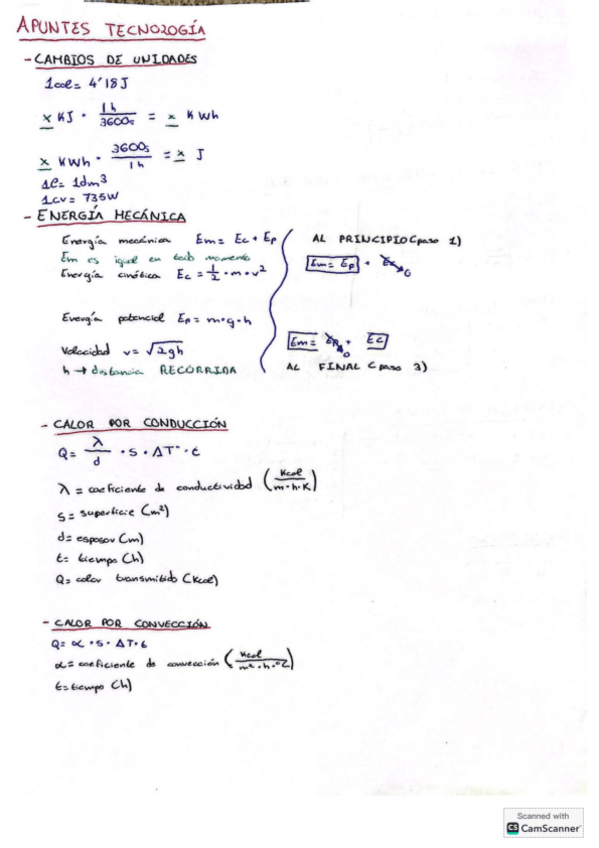 APUNTES TECNOLOGÍA
- CAMBIOS DE UNIDADES
1cal = 4'18 J
x KJ · 1h / 3600s = x KWh
x KWh · 3600s / 1h = x J
1l = 1dm³
1cv = 735W
- ENERGÍA MECÁNICA
Energía mecánica Em = Ec + Ep
Em es igual en todo momento
Energía cinética Ec = 1/2 · m · v²
Energía potencial Ep = m·g·h
Velocidad v = √2gh
h → distancia RECORRIDA
AL PRINCIPIO (paso 1)
Em = Ep + Ec 0
Em = Ep 0 + Ec
AL FINAL (paso 3)
- CALOR POR CONDUCCIÓN
Q = λ / d · S · ΔT · t
λ = coeficiente de conductividad (Kcal / m·h·K)
S = superficie (m²)
d = espesor (m)
t = tiempo (h)
Q = calor transmitido (Kcal)
- CALOR POR CONVECCIÓN
Q = α · S · ΔT · t
α = coeficiente de convección (Kcal / m²·h·ºC)
t = tiempo (h)
Scanned with
CS CamScanner